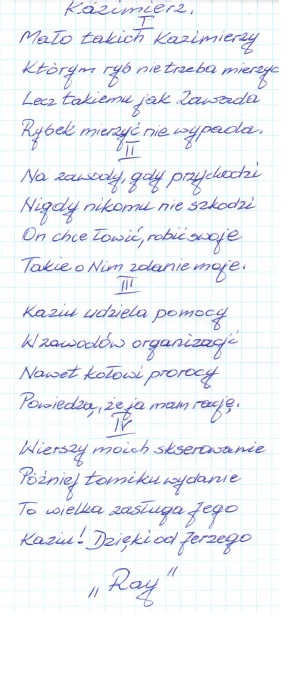 Kazimierz.
I
Mało takich Kazimierzy
Którym ryb nie trzeba mierzyć
Lecz takiemu jak Zawada
Rybek mierzyć nie wypada.
II
Na zawody, gdy przychodzi
Nigdy nikomu nie szkodzi
On chce łowić, robić swoje
Takie o Nim zdanie moje.
III
Kaziu udziela pomocy
W zawodów organizacji
Nawet kołowi prorocy
Powiedzą, że ja mam rację.
IV
Wierszy moich skserowanie
Później tomiku wydanie
To wielka zasługa Jego
Kaziu! Dzięki od Jerzego
„Ray"